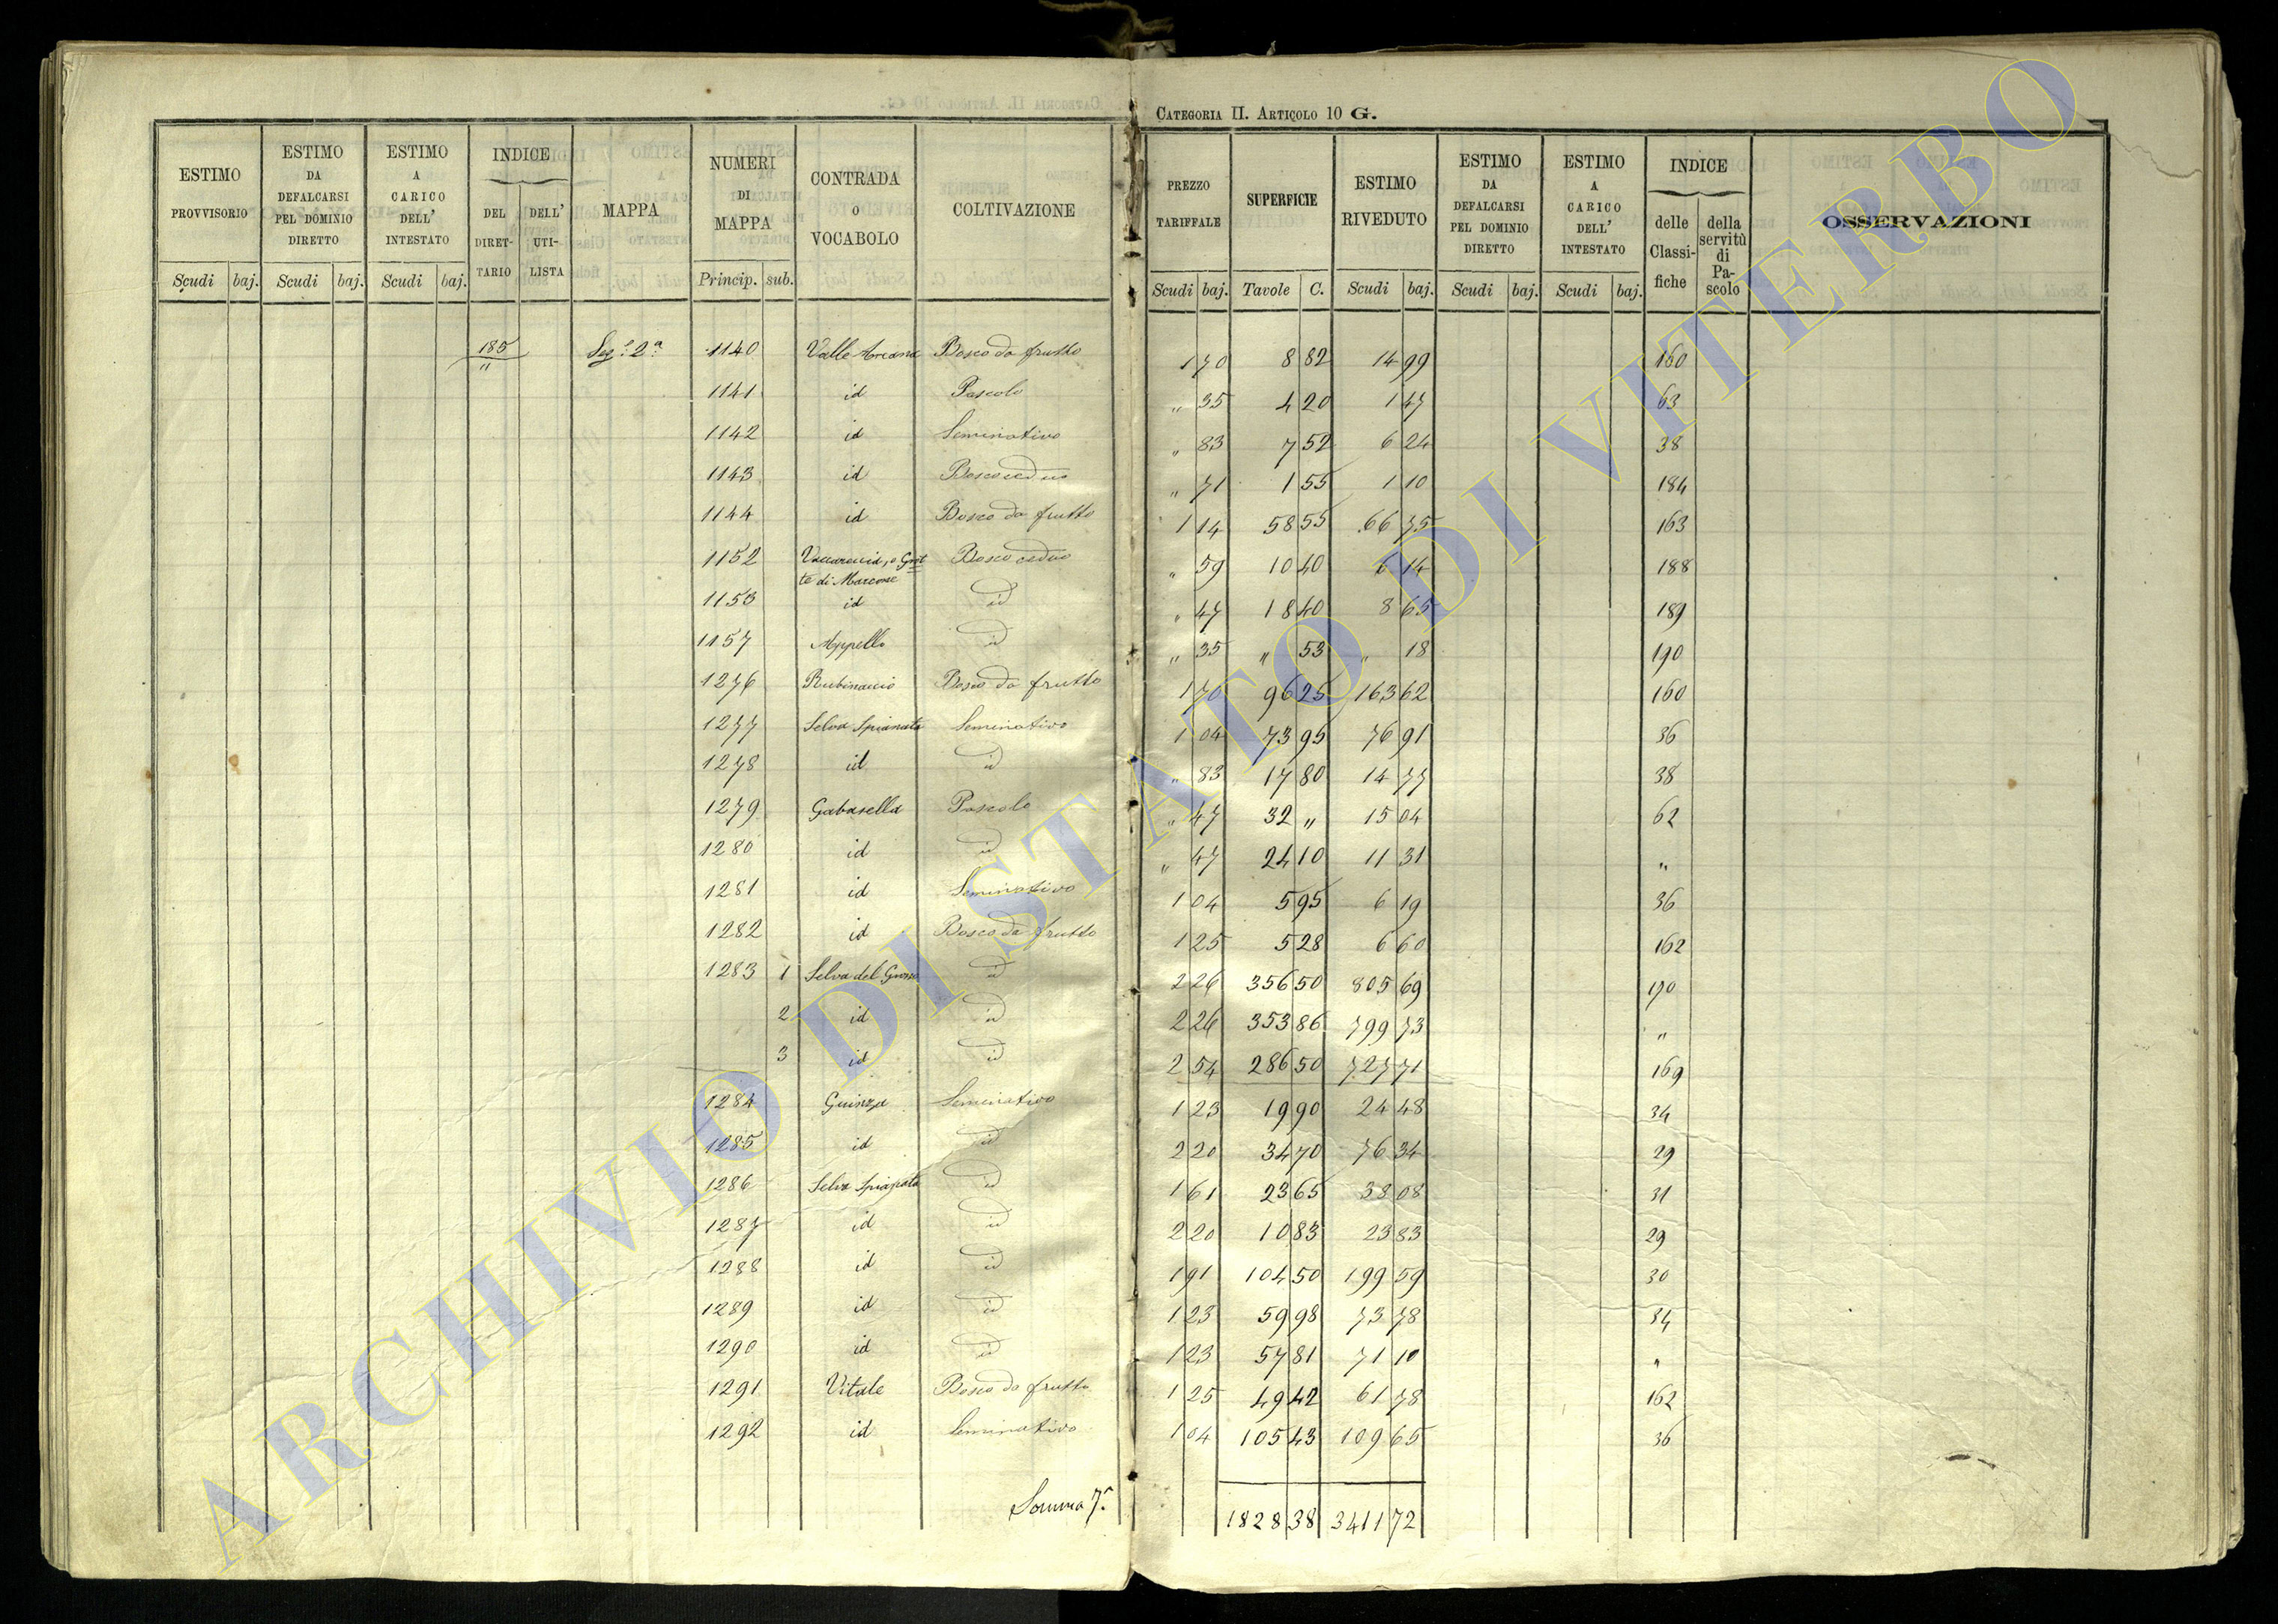 CATEGORIA II. ARTICOLO 10 G.
ESTIMO PROVVISORIO Scudi baj.
ESTIMO DA DEFALCARSI PEL DOMINIO DIRETTO Scudi baj.
ESTIMO A CARICO DELL' INTESTATO Scudi baj.
INDICE DEL DIRETTARIO DELL' UTILISTA
MAPPA
NUMERI DI MAPPA Princip. sub.
CONTRADA O VOCABOLO
COLTIVAZIONE
PREZZO TARIFFALE Scudi baj.
SUPERFICIE Tavole C.
ESTIMO RIVEDUTO Scudi baj.
ESTIMO DA DEFALCARSI PEL DOMINIO DIRETTO Scudi baj.
ESTIMO A CARICO DELL' INTESTATO Scudi baj.
INDICE delle Classifiche della servitù di Pascolo
OSSERVAZIONI
185 " Sez.e 2a 1140 Valle Arcana Bosco da frutto 1 70 8 82 14 99 160
1141 id Pascolo " 35 4 20 1 47 63
1142 id Seminativo " 83 7 52 6 24 38
1143 id Bosco ceduo " 71 1 55 1 10 184
1144 id Bosco da frutto 1 14 58 55 66 75 163
1152 Vaccareccia, o Grotte di Marcone Bosco ceduo " 59 10 40 6 14 188
1153 id id " 47 18 40 8 65 189
1157 Appello id " 35 " 53 " 18 190
1276 Rubinaccio Bosco da frutto 1 70 96 25 163 62 160
1277 Selva Spianata Seminativo 1 04 73 95 76 91 36
1278 id id " 83 17 80 14 77 38
1279 Gabasella Pascolo " 47 32 " 15 04 62
1280 id id " 47 24 10 11 31 "
1281 id Seminativo 1 04 5 95 6 19 36
1282 id Bosco da frutto 1 25 5 28 6 60 162
1283 1 Selva del Grosso id 2 26 356 50 805 69 190
2 id id 2 26 353 86 799 73 "
3 id id 2 54 286 50 727 71 169
1284 Guinza Seminativo 1 23 19 90 24 48 34
1285 id id 2 20 34 70 76 34 29
1286 Selva Spianata id 1 61 23 65 38 08 31
1287 id id 2 20 10 83 23 83 29
1288 id id 1 91 104 50 199 59 30
1289 id id 1 23 59 98 73 78 34
1290 id id 1 23 57 81 71 10 "
1291 Vitale Bosco da frutto 1 25 49 42 61 78 162
1292 id Seminativo 1 04 105 43 109 65 36
Somma 7a 1828 38 3411 72
ARCHIVIO DI STATO DI VITERBO